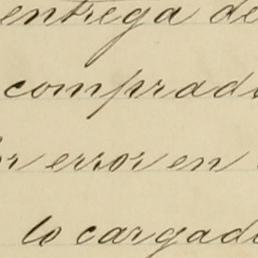 entrega de
comprad
or error en
lo cargad